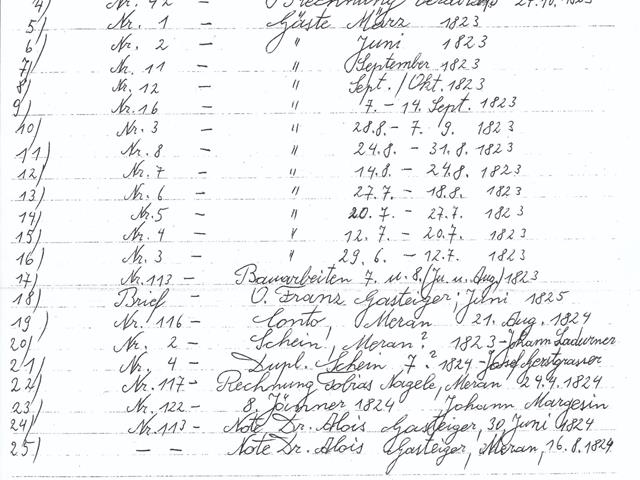 4) Nr. 42 - 24.10.1823
5) Nr. 1 - Gäste März 1823
6) Nr. 2 - " Juni 1823
7) Nr. 11 - " September 1823
8) Nr. 12 - " Sept./Okt. 1823
9) Nr. 16 - " 7. - 14. Sept. 1823
10) Nr. 3 - " 28.8. - 7. 9. 1823
11) Nr. 8 - " 24.8. - 31.8. 1823
12) Nr. 7 - " 14.8. - 24.8. 1823
13) Nr. 6 - " 27.7. - 18.8. 1823
14) Nr. 5 - " 20.7. - 27.7. 1823
15) Nr. 4 - " 12.7. - 20.7. 1823
16) Nr. 3 - " 29.6. - 12.7. 1823
17) Nr. 113 - Bauarbeiten 7. u. 8. (Ju. u. Aug.) 1823
18) Brief - V. Franz Gasteiger; Juni 1825
19) Nr. 116 - Conto, Meran 21. Aug. 1824
20) Nr. 2 - Schein, Meran? 1823 - Johann Ladurner
21) Nr. 4 - Dupl. Schein 7? 1824 - Josef Gerstgrasser
22) Nr. 117 - Rechnung Tobias Nagele, Meran 29.4.1824
23) Nr. 122 - 8. Jänner 1824 Johann Margesin
24) Nr. 113 - Note Dr. Alois Gasteiger, 30. Juni 1824
25) - - Note Dr. Alois Gasteiger, Meran, 16.8.1824